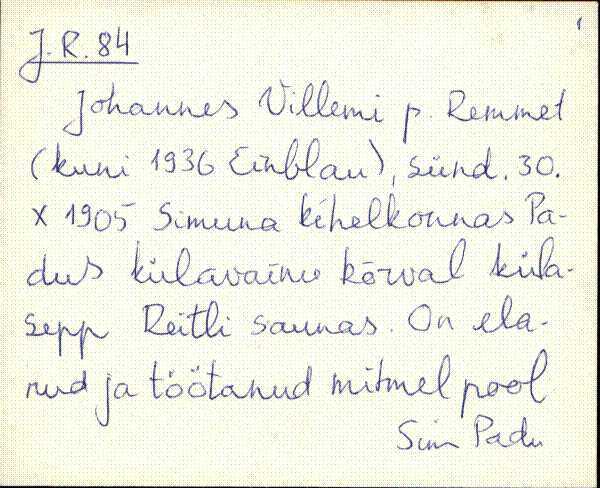 1
J. R. 84
Johannes Villemi p. Remmet
(kuni 1936 Einblau), sünd. 30.
X 1905 Simuna kihelkonnas Pa-
dus külavainu kõrval küla-
sepp Reitli saunas. On ela-
nud ja töötanud mitmel pool
Sim Padu